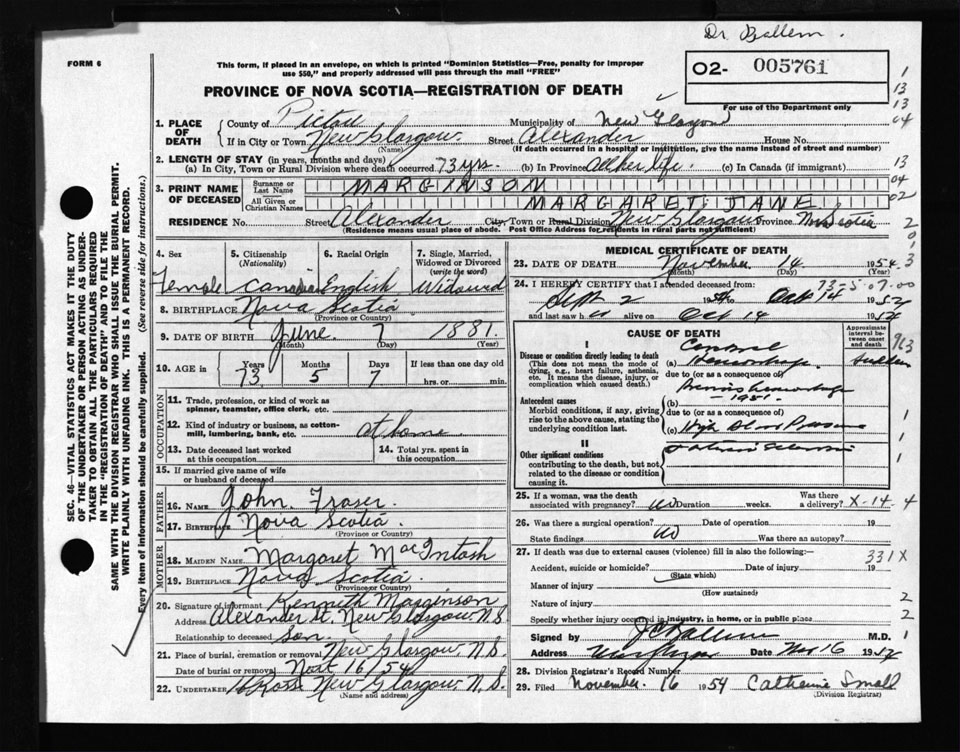 Dr Ballem.
FORM 6
This form, if placed in an envelope, on which is printed "Dominion Statistics—Free, penalty for improper
use $50," and properly addressed will pass through the mail "FREE"
02- 005761
PROVINCE OF NOVA SCOTIA—REGISTRATION OF DEATH
For use of the Department only
1. PLACE OF DEATH
County of Pictou Municipality of New Glasgow
If in City or Town New Glasgow Street Alexander House No.
(Name) (If death occurred in a hospital or institution, give its name instead of street and number)
2. LENGTH OF STAY (in years, months and days)
(a) In City, Town or Rural Division where death occurred 73 yrs. (b) In Province All her life. (c) In Canada (if immigrant)
3. PRINT NAME OF DECEASED
Surname or Last Name MARGINSON
All Given or Christian Names MARGARET JANE
RESIDENCE No. Street Alexander City, Town or Rural Division New Glasgow Province Nova Scotia
(Residence means usual place of abode. Post Office Address for residents in rural parts not sufficient)
4. Sex
Female
5. Citizenship
(Nationality)
Canadian
6. Racial Origin
English
7. Single, Married,
Widowed or Divorced
(write the word)
Widowed
8. BIRTHPLACE Nova Scotia
(Province or Country)
9. DATE OF BIRTH June 7 1881.
(Month) (Day) (Year)
10. AGE in Years Months Days If less than one day
73 5 7 hrs. or min.
OCCUPATION
11. Trade, profession, or kind of work as
spinner, teamster, office clerk, etc.
12. Kind of industry or business, as cotton-
mill, lumbering, bank, etc. at home
13. Date deceased last worked
at this occupation
14. Total yrs. spent in
this occupation
15. If married give name of wife
or husband of deceased
FATHER
16. NAME John Fraser.
17. BIRTHPLACE Nova Scotia.
(Province or Country)
MOTHER
18. MAIDEN NAME Margaret MacIntosh
19. BIRTHPLACE Nova Scotia.
(Province or Country)
20. Signature of informant Kenneth Marginson
Address Alexander St. New Glasgow N.S.
Relationship to deceased Son.
21. Place of burial, cremation or removal New Glasgow N.S.
Date of burial or removal 16/54
22. UNDERTAKER Ross New Glasgow N.S.
(Name and address)
MEDICAL CERTIFICATE OF DEATH
23. DATE OF DEATH November 14 1954
(Month) (Day) (Year)
73-5-07-00
24. I HEREBY CERTIFY that I attended deceased from:
Sept 2 19 Oct 14 1954
and last saw h alive on Oct 14 1954
CAUSE OF DEATH
Approximate
interval
between
onset
and death
I
Disease or condition directly leading to death
(This does not mean the mode of
dying, e.g., heart failure, asthenia,
etc. It means the disease, injury, or
complication which caused death.)
(a) Cerebral
Hemorrhage sudden
due to (or as a consequence of)
Antecedent causes
Morbid conditions, if any, giving
rise to the above cause, stating the
underlying condition last.
Previous hemorrhage
(b) —1951.
due to (or as a consequence of)
(c) High Blood Pressure
II
Other significant conditions
contributing to the death, but not
related to the disease or condition
causing it.
25. If a woman, was the death
associated with pregnancy? no Duration weeks. Was there
a delivery? X-14. 4
26. Was there a surgical operation? Date of operation 19
State findings no Was there an autopsy?
27. If death was due to external causes (violence) fill in also the following:—
331X
Accident, suicide or homicide? Date of injury 19
(State which)
Manner of injury
(How sustained)
Nature of injury
Specify whether injury occurred in industry, in home, or in public place
Signed by J C Ballem M.D.
Address New Glasgow Date Nov 16 1954
28. Division Registrar's Record Number
29. Filed November 16 1954 Catherine Small
(Division Registrar)
SEC. 46—VITAL STATISTICS ACT MAKES IT THE DUTY
OF THE UNDERTAKER OR PERSON ACTING AS UNDER-
TAKER TO OBTAIN ALL THE PARTICULARS REQUIRED
IN THE "REGISTRATION OF DEATH" AND TO FILE THE
SAME WITH THE DIVISION REGISTRAR WHO SHALL ISSUE THE BURIAL PERMIT.
WRITE PLAINLY WITH UNFADING INK. THIS IS A PERMANENT RECORD.
Every item of information should be carefully supplied. (See reverse side for instructions.)
1
13
13
04
13
04
02
2
0
3
963
1
1
1
2
2
1